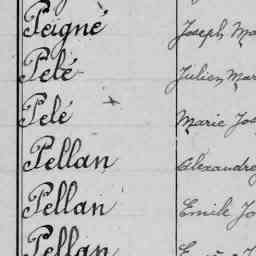 Peigné Joseph Ma
Pelé Julien Mar
Pelé Marie Jos
Pellan Alexandre
Pellan Emile Jo
Pellan